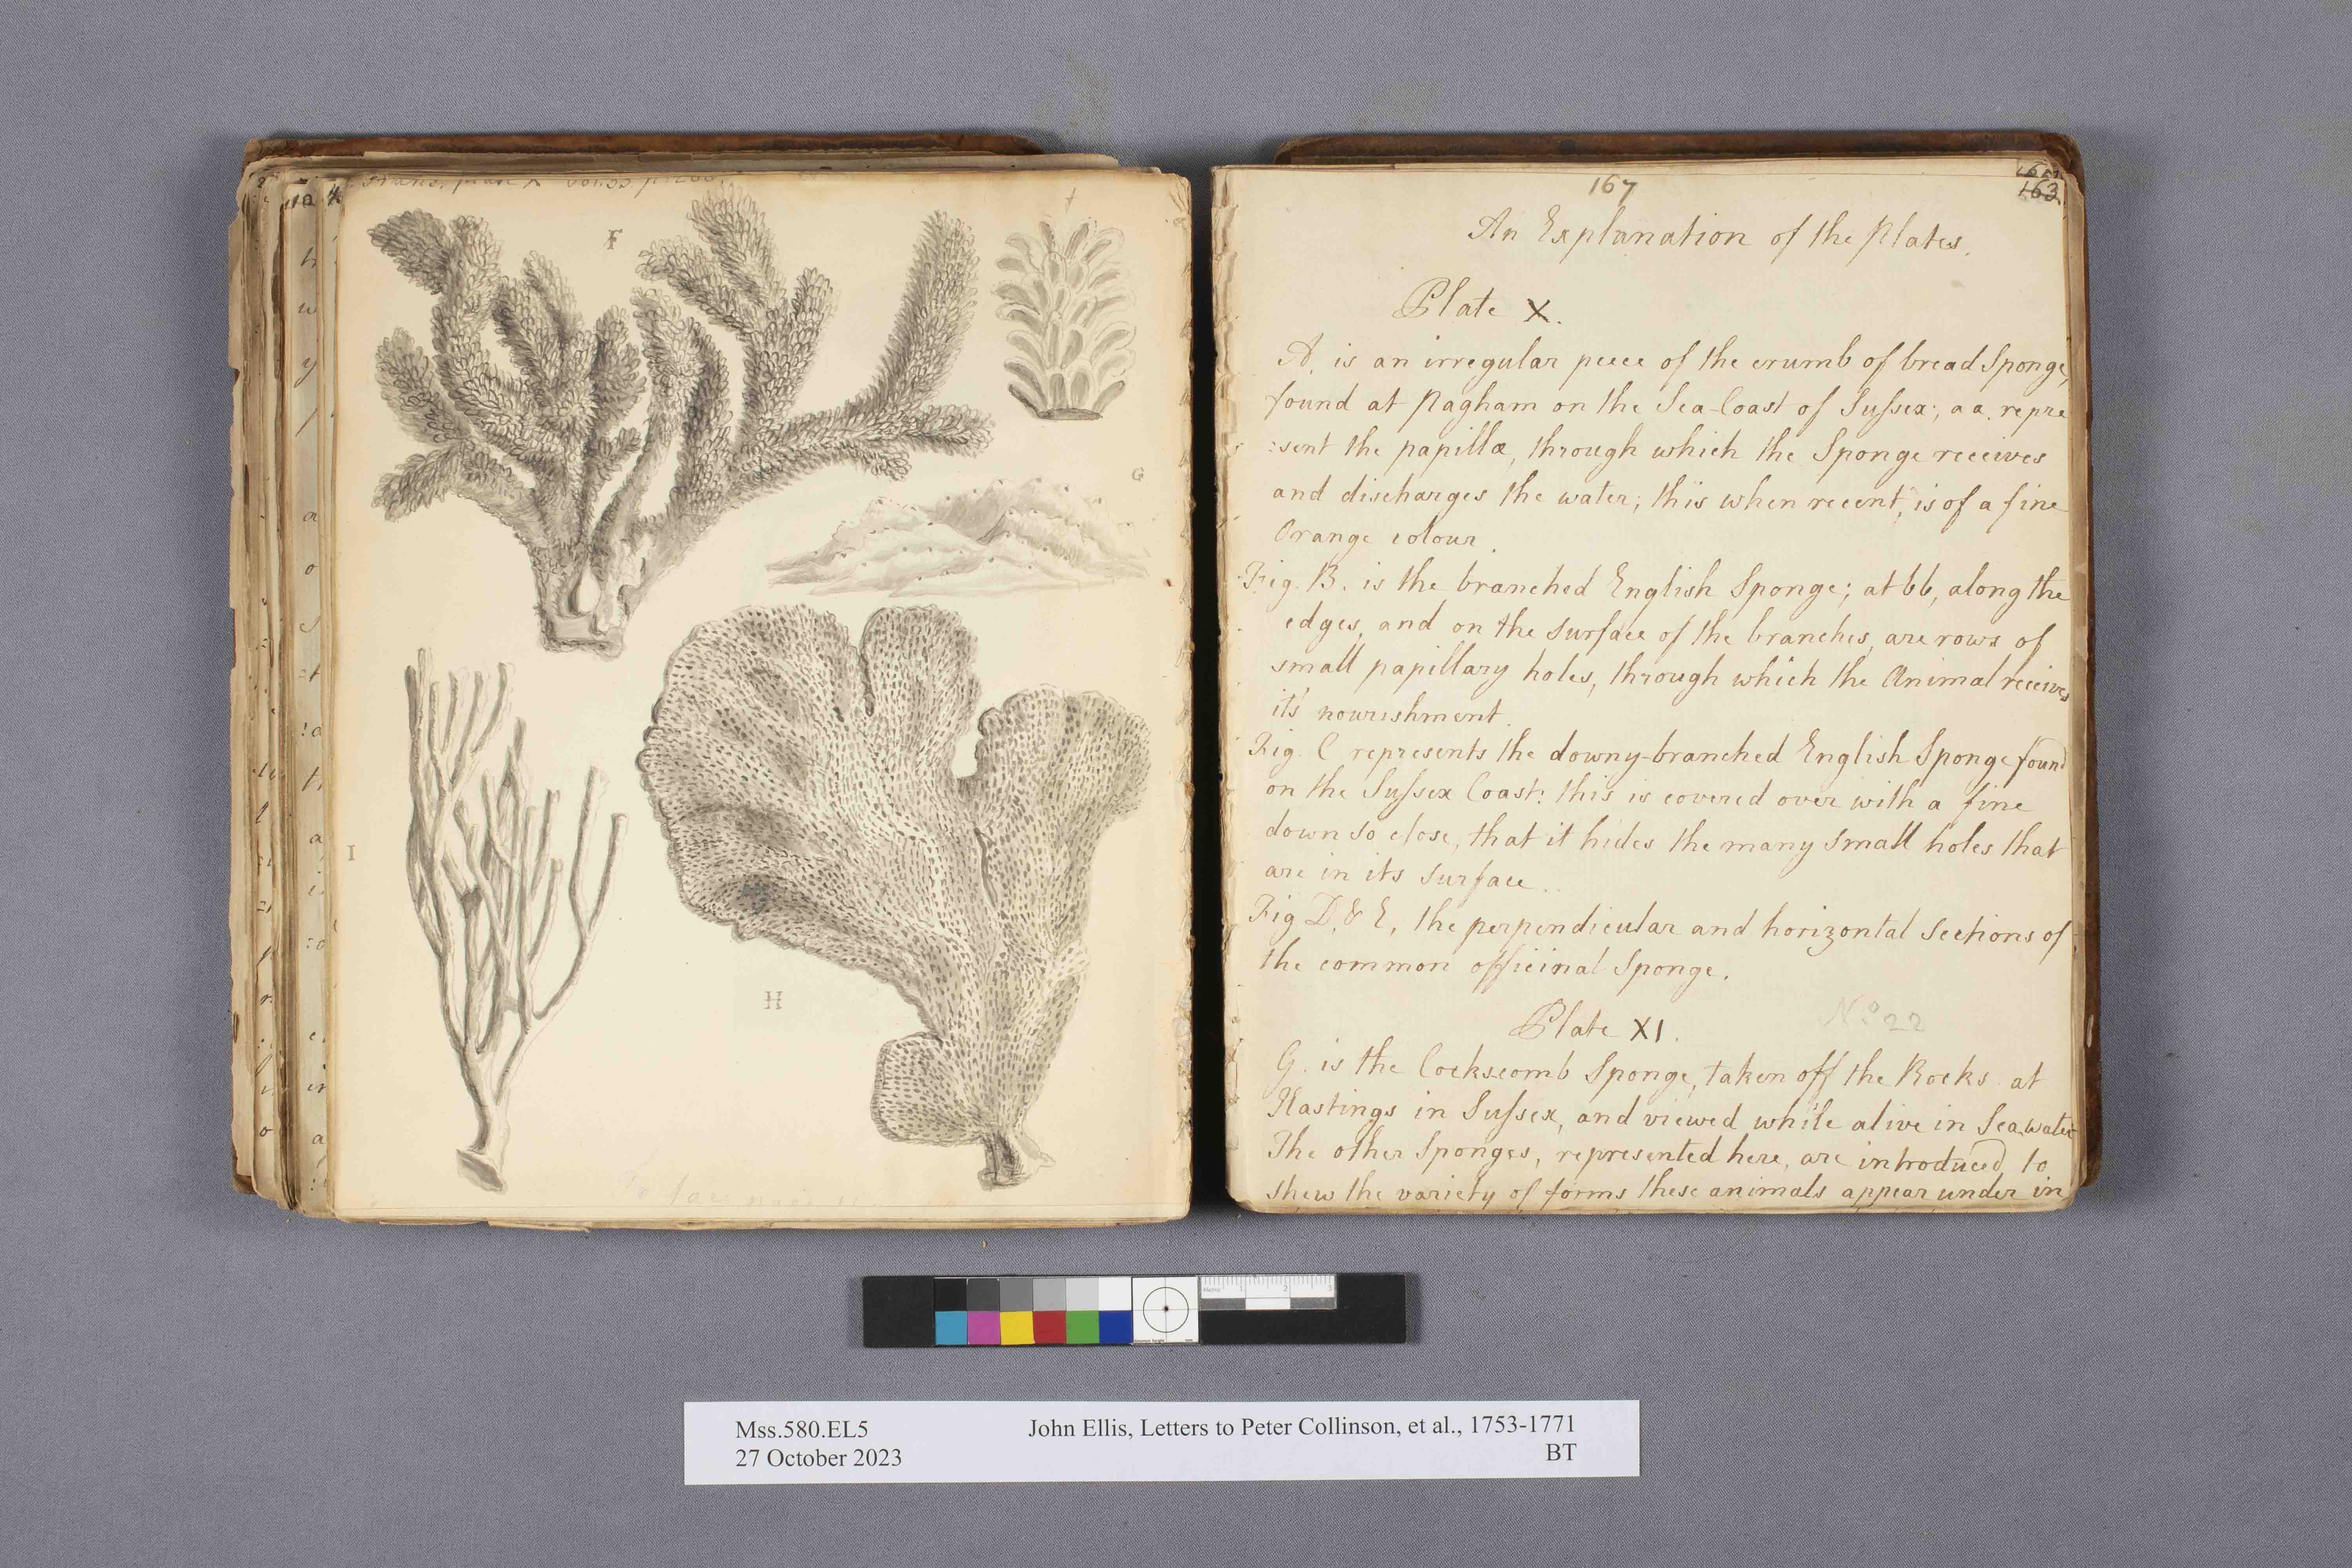 F
f
G
H
I
167
163
An Explanation of the Plates.
Plate X.
A. is an irregular peece of the crumb of bread Sponge,
found at Pagham on the Sea-Coast of Sussex; aa. repre
:sent the papillæ, through which the Sponge receives
and discharges the water; this when recent, is of a fine
Orange colour.
Fig. B. is the branched English Sponge; at bb, along the
edges, and on the surface of the branches, are rows of
small papillary holes, through which the Animal receives
it's nourishment.
Fig. C represents the downy-branched English Sponge found
on the Sussex Coast: this is covered over with a fine
down so close, that it hides the many small holes that
are in its surface.
Fig D. & E, the perpendicular and horizontal Sections of
the common officinal Sponge.
Plate XI.
No. 22
G. is the Cockscomb Sponge, taken off the Rocks at
Hastings in Sussex, and viewed while alive in Sea water
The other Sponges, represented here, are introduced to
shew the variety of forms these animals appear under in
Mss.580.EL5
John Ellis, Letters to Peter Collinson, et al., 1753-1771
27 October 2023
BT